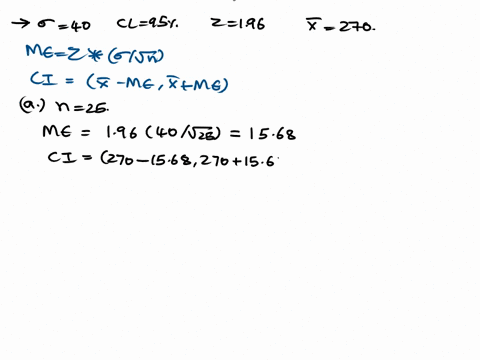 → σ=40 CL=95% Z=1.96 x̄=270.
ME=Z*(σ/√n)
CI = (x̄-ME, x̄+ME)
(a.) n=25.
ME = 1.96 (40/√25) = 15.68
CI = (270-15.68, 270+15.6